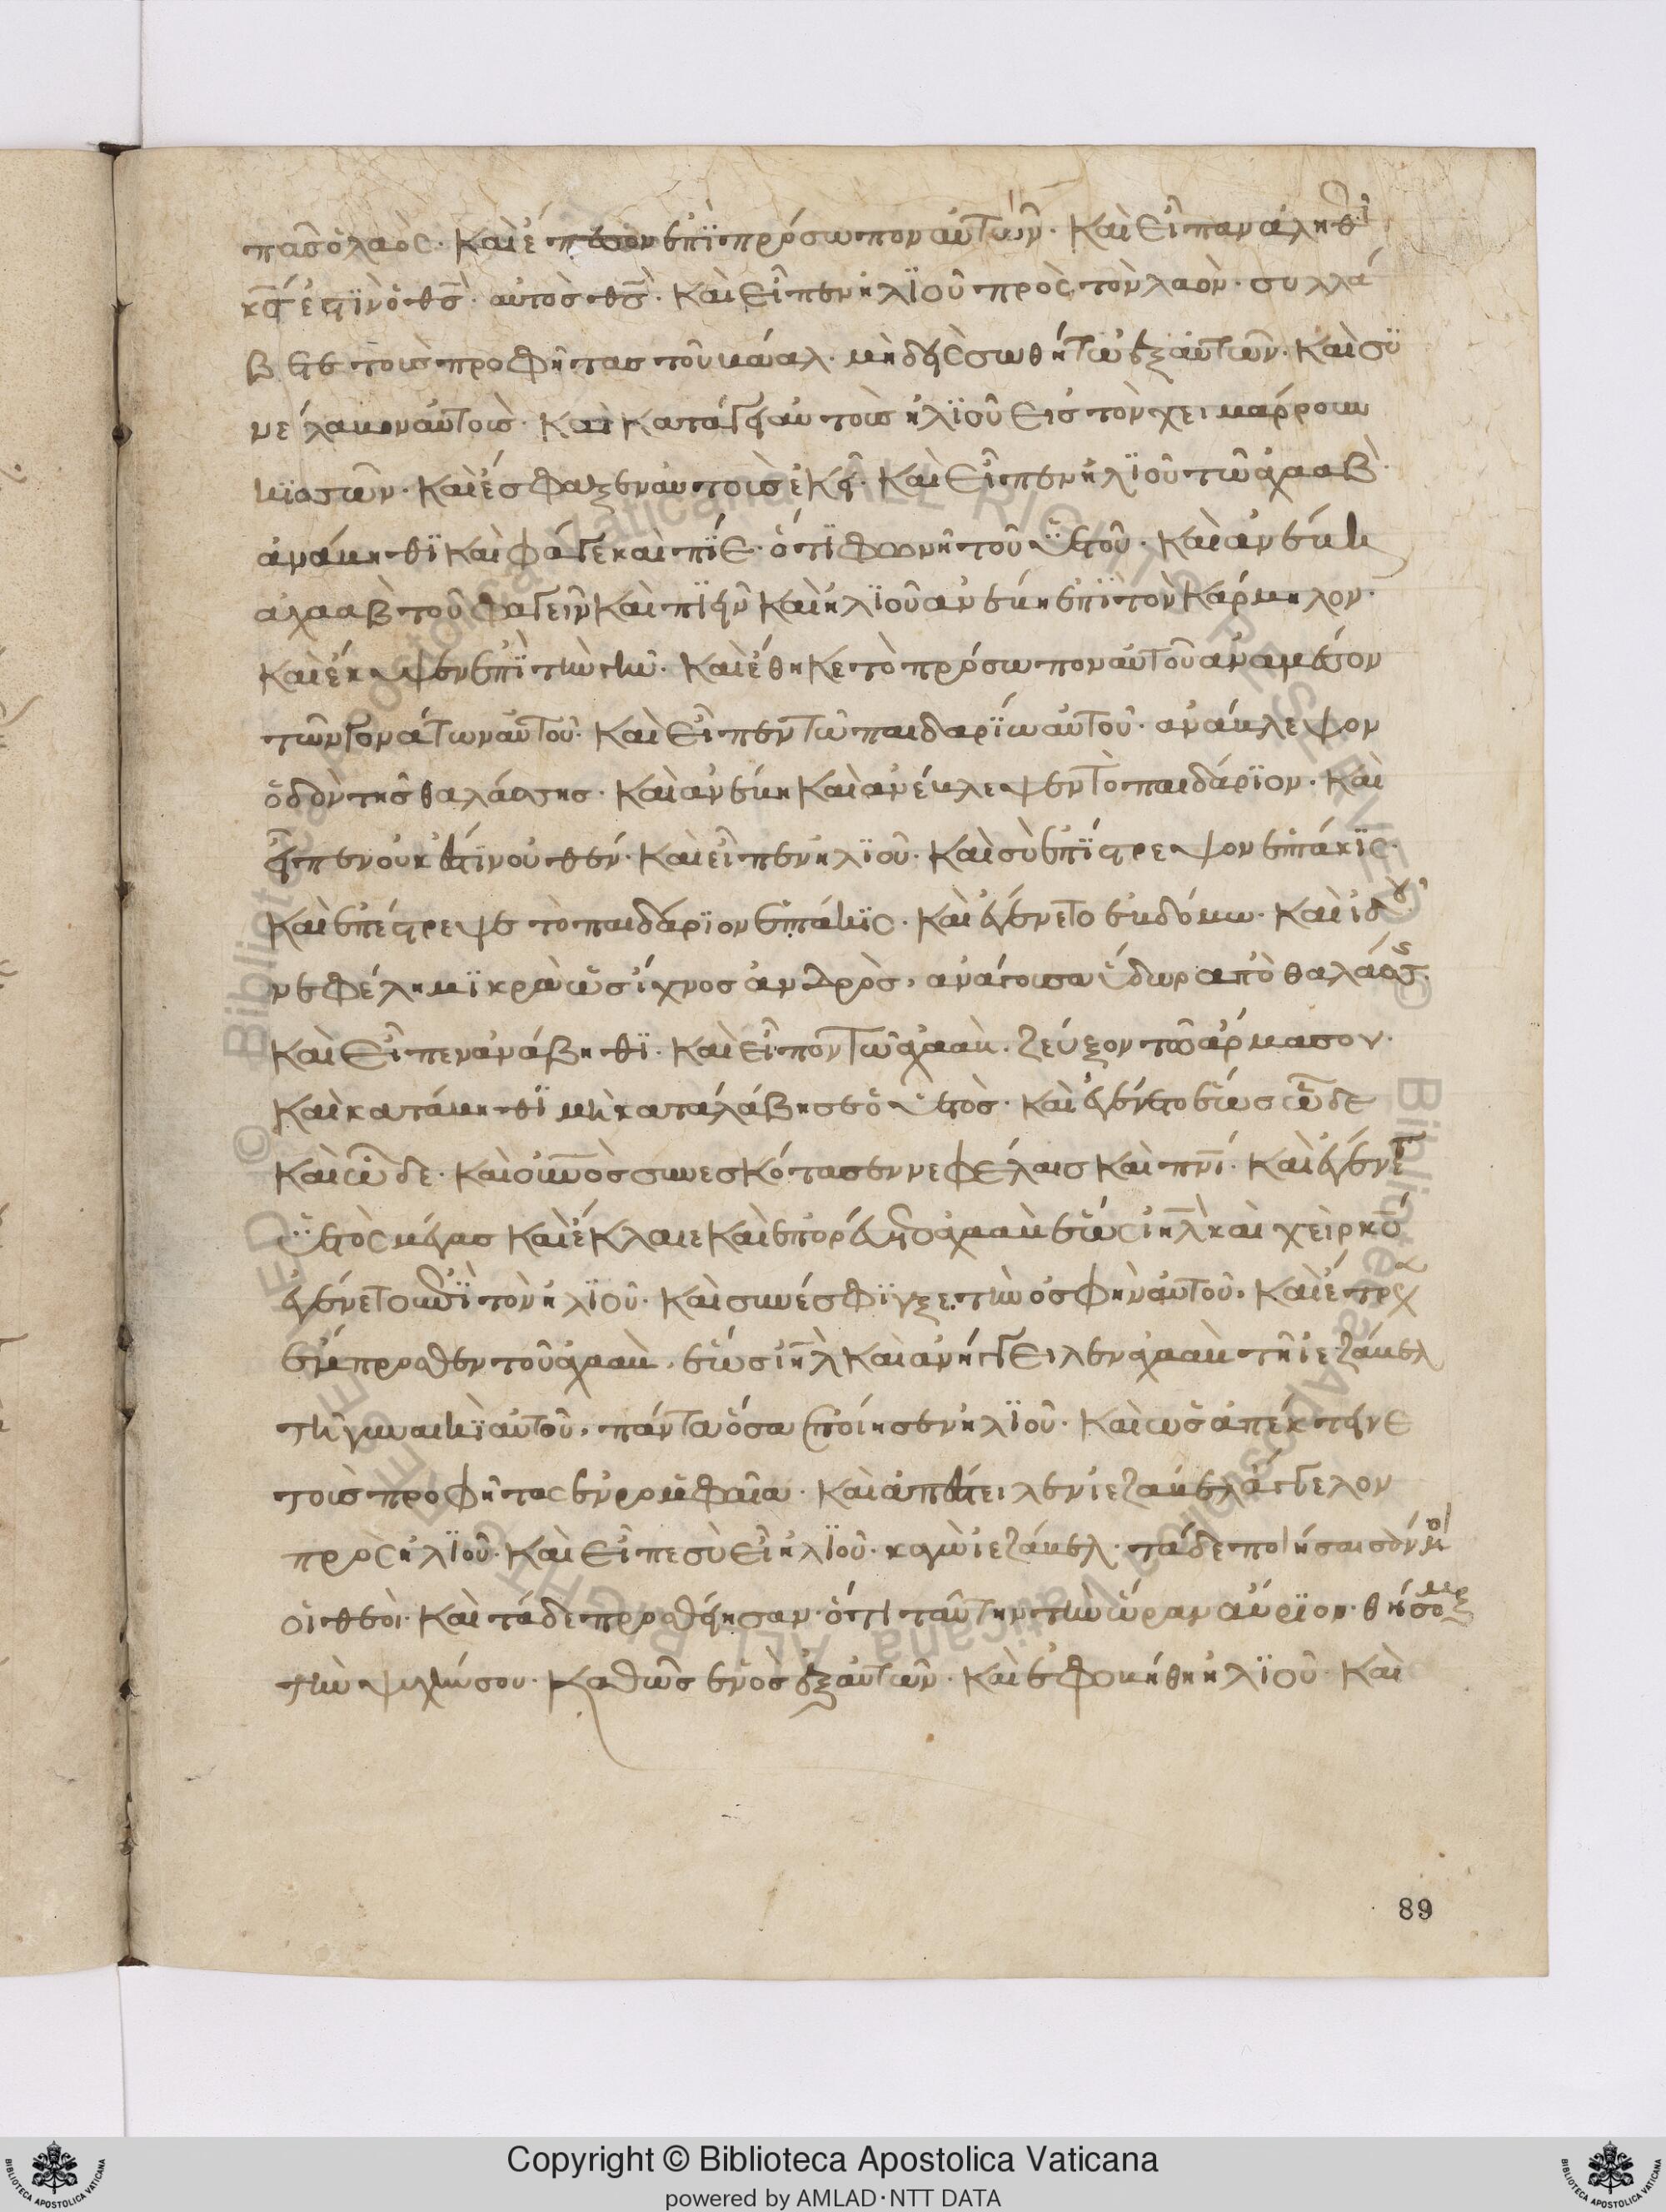 πᾶσ ὁ λαὸς· καὶ ἔπεσον ἐπῒ πρόσωπον αὐτῶν· καὶ εἶπαν ἀληθ
κ̅ς̅ ἐστῒν ὁ θ̅ς̅· αὐτὸσ θ̅ς̅· καὶ εἶπεν ἠλϊοῦ πρὸς τὸν λαὸν· συλλά
βετε τοὺσ προφήτασ τοῦ βάαλ· μηδεὶς σωθήτω ἐξ αὐτῶν· καὶ συ
νέλαβον αὐτοὺσ· καὶ κατάγει αὐτοὺσ ἠλϊοῦ εἰσ τὸν χειμάρρουν
κϊσσῶν· καὶ ἔσφαξεν αὐτοὺσ ἐκεῖ· καὶ εἶπεν ἠλϊοῦ τῶ ἀχααβ·
ἀνάβηθϊ καὶ φάγε καὶ πΐε· ὅτϊ φωνὴ τοῦ ὑετοῦ· καὶ ἀνέβη
ἀχααβ τοῦ φαγεῖν καὶ πϊεῖν καὶ ἠλϊοῦ ἀνέβη ἐπῒ τὸν κάρμηλον·
καὶ ἔκυψεν ἐπῒ τὴν γῆν· καὶ ἔθηκε τὸ πρόσωπον αὐτοῦ ἀναμέσον
τῶν γονάτων αὐτοῦ· καὶ εἶπεν τῶ παιδαρϊω αὐτοῦ· ἀνάβλεψον
ὁδὸν τῆσ θαλάσσησ· καὶ ἀνέβη καὶ ἀνέβλεψεν τὸ παιδάρϊον· καὶ
εἶπεν οὐκ ἔστϊν οὐθέν· καὶ εἶπεν ἠλϊοῦ· καὶ σὺ ἐπΐστρεψον ἑπτάκϊς·
καὶ ἐπέστρεψε τὸ παιδάρϊον ἑπτάκϊς· καὶ ἐγένετο ἑβδόμω· καὶ ἰδοὺ
νεφέλη μϊκρὰ ὡσ ἴχνοσ ἀνδρὸσ, ἀνάγουσα ὕδωρ ἀπὸ θαλάσσης·
καὶ εἶπεν ἀνάβηθϊ· καὶ εἶπὸν τῶ ἀχααβ· ζεῦξον τὸ ἅρμα σου·
καὶ κατάβηθϊ μὴ καταλάβησε ὁ ὑετὸσ· καὶ ἐγένετο ἕωσ ὧδε
καὶ ὧδε· καὶ ὁ οὐ̅νὸσ συνεσκότασεν νεφέλαισ καὶ πνΐ· καὶ ἐγένετ
ὑετὸς μέγασ καὶ ἔκλαιε καὶ ἐπορεύετο ἀχααβ ἕως ἰη̅λ̅ καὶ χεὶρ κ̅υ̅
ἐγένετο ἐπῒ τὸν ἠλϊοῦ· καὶ συνέσφϊγξε τὴν ὀσφὴν αὐτοῦ, καὶ ἔτρεχ
ἔμπροσθεν τοῦ ἀχααβ, ἕωσ ἰη̅λ̅ καὶ ἀνήγγειλεν ἀχααβ τῆ ἰεζάβελ
τῆ γυναικῒ αὐτοῦ, πάντα ὅσα ἐποίησεν ἠλϊοῦ· καὶ ὡσ ἀπέκτεινε
τοὺσ προφήτας ἐν ρομφαία· καὶ ἀπέστειλεν ἰεζάβελ ἄγγελον
πρὸς ἠλϊοῦ· καὶ εἶπε σὺ εἶ ἠλϊοῦ· κἀγὼ ἰεζάβελ· τάδε ποιήσαισάν μοι
οἱ θεοὶ· καὶ τάδε προσθείησαν· ὅτι ταύτην τὴν ὥραν αὔρϊον· θήσομαι
τὴν ψυχήν σου· καθὼσ ἑνὸσ ἐξ αὐτῶν· καὶ ἐφοβήθη ἠλϊοῦ· καὶ
89
Copyright © Biblioteca Apostolica Vaticana
powered by AMLAD·NTT DATA